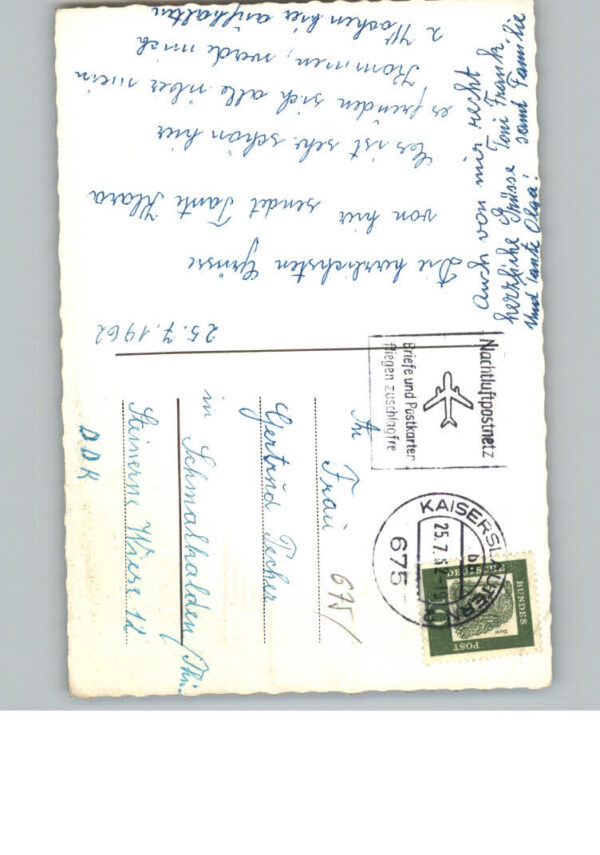 25.7.1962
Die herzlichsten Grüsse
von hier sendet Tante Klara
Es ist sehr schön hier
es freuden sich alle über mein
Kommen, werde mich
2 Wochen hier aufhalten
auch von mir recht
herzliche Grüsse Toni Frank
und Tante Olga! samt Familie
Nachtluftpostnetz
Briefe und Postkarten
fliegen zuschlagfre
KAISERSLAUTERN
25.7.
675
DEUTSCHE
BUNDES
POST
10
An
Frau
675/
Gertrud Pecher
in Schmalkalden/Thür.
Steinerne Wiese 12
DDR